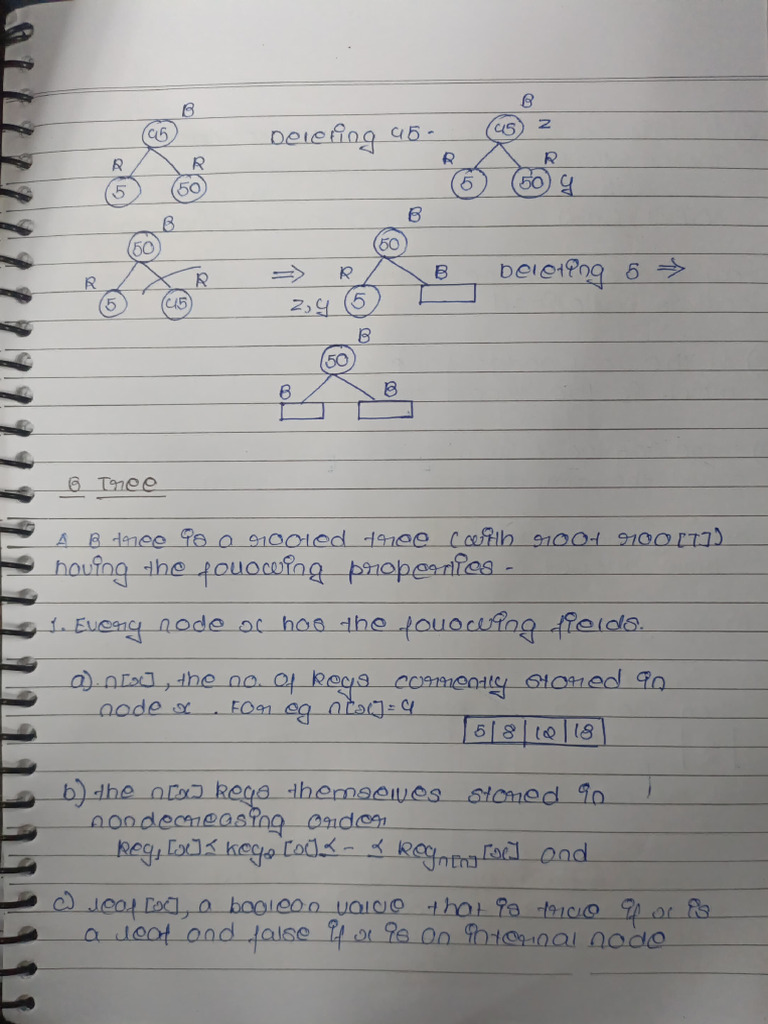 B B
45 Deleting 45- 45 z
R R R R
5 50 5 50 y
B B
50 50
R R ⇒ R B Deleting 5 ⇒
5 45 z,y 5
B
50
B B
B Tree
A B tree is a rooted tree (with root roo[T])
having the following properties -
1. Every node x has the following fields.
a) n[x], the no. of keys currently stored in
node x. For eg n[x]=4
5 8 12 18
b) the n[x] keys themselves stored in
nondecreasing order
key₁[x] ≤ key₂[x] ≤ - ≤ keyₙ[ₙ][x] and
c) leaf[x], a boolean value that is true if x is
a leaf and false if x is an internal node